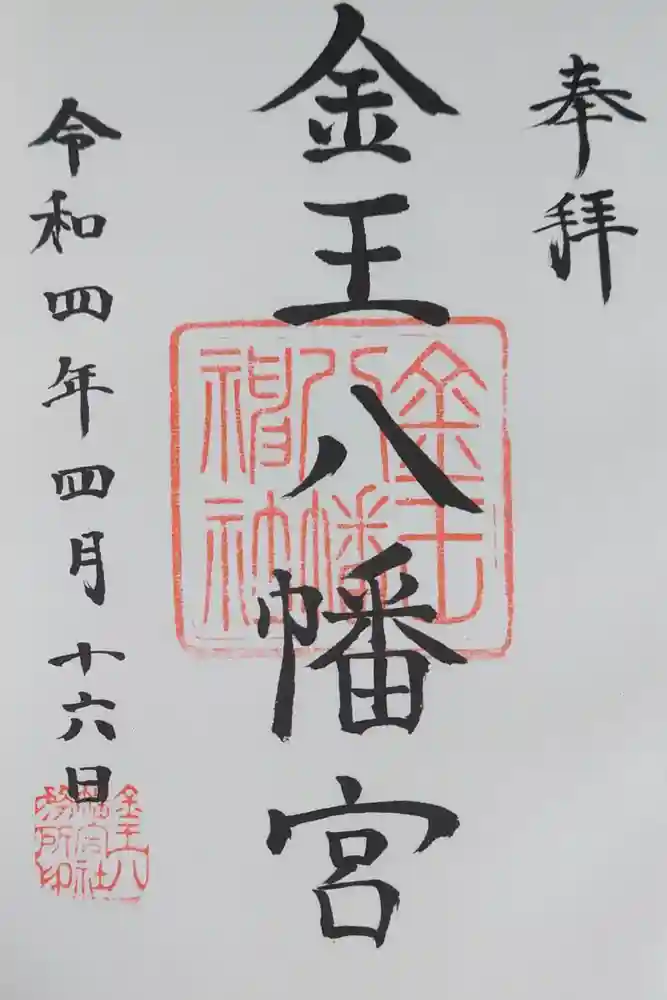 奉拝
金王八幡宮
金王八幡神社
令和四年四月十六日
金王八幡宮社務所印